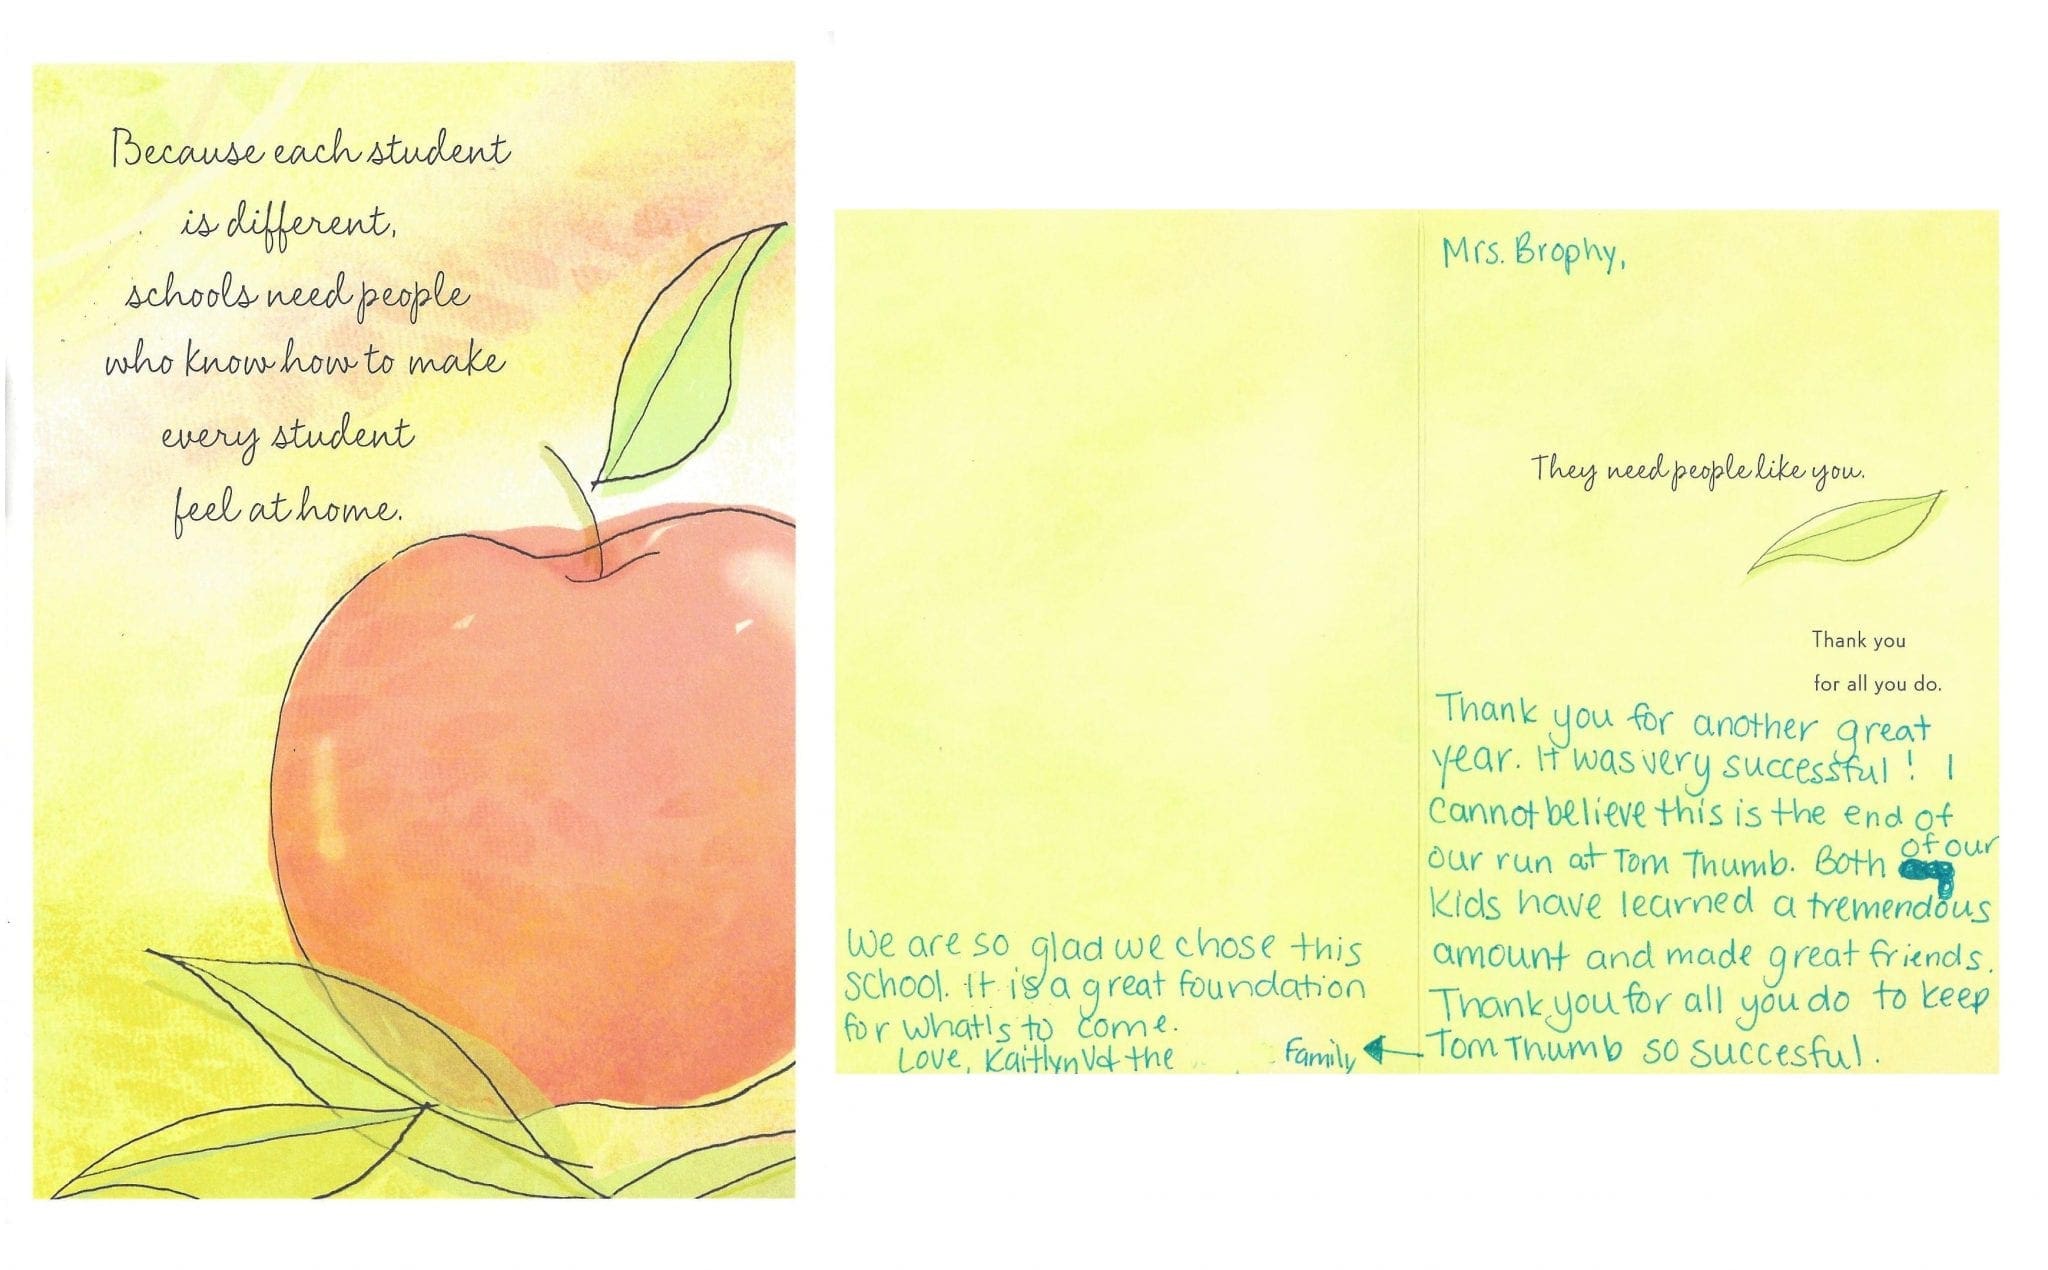 Because each student
is different,
schools need people
who know how to make
every student
feel at home.
Mrs. Brophy,
They need people like you.
Thank you
for all you do.
Thank you for another great
year. It was very successful! I
cannot believe this is the end of
our run at Tom Thumb. Both of our
kids have learned a tremendous
amount and made great friends.
Thank you for all you do to keep
Tom Thumb so succesful.
We are so glad we chose this
school. It is a great foundation
for what is to come.
Love, Kaitlyn V & the Family